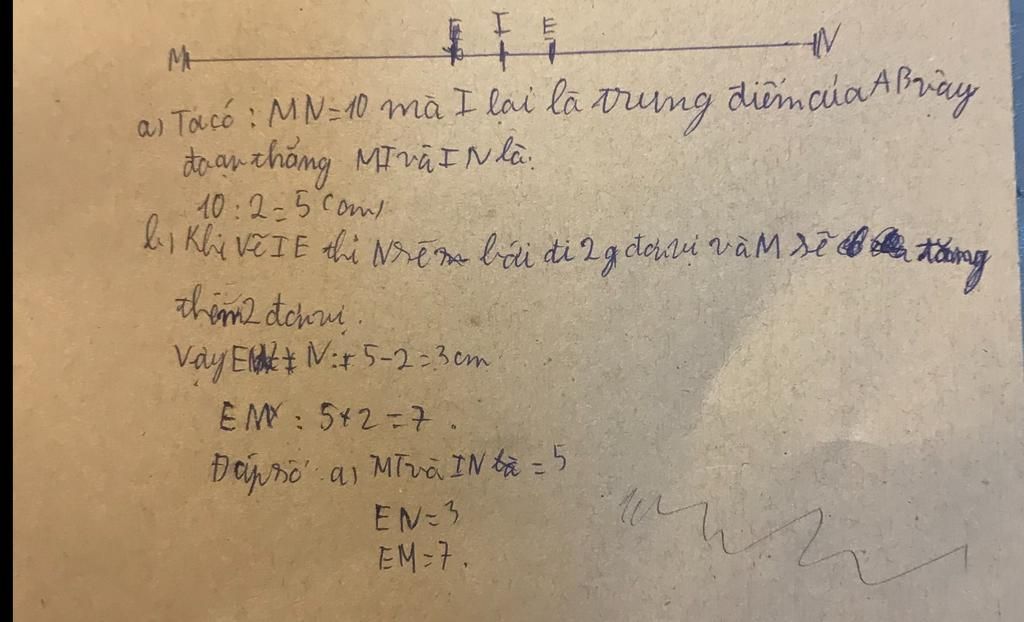 M E I E N
a) Ta có : MN=10 mà I lại là trung điểm của AB vậy
đoạn thẳng MI và IN là:
10 : 2 = 5 (cm)
b) Khi vẽ IE thì N sẽ bới đi 2 đơn vị và M sẽ tăng
thêm 2 đơn vị.
Vậy EN : 5-2=3cm
EM : 5+2=7.
Đáp số a) MI và IN = 5
EN=3
EM=7.